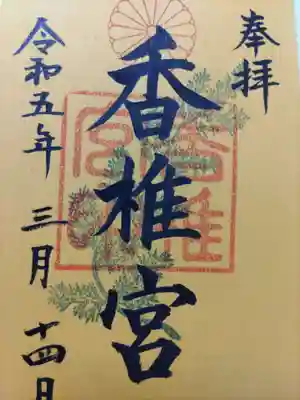 奉拝
香椎宮
令和五年 三月 十四日